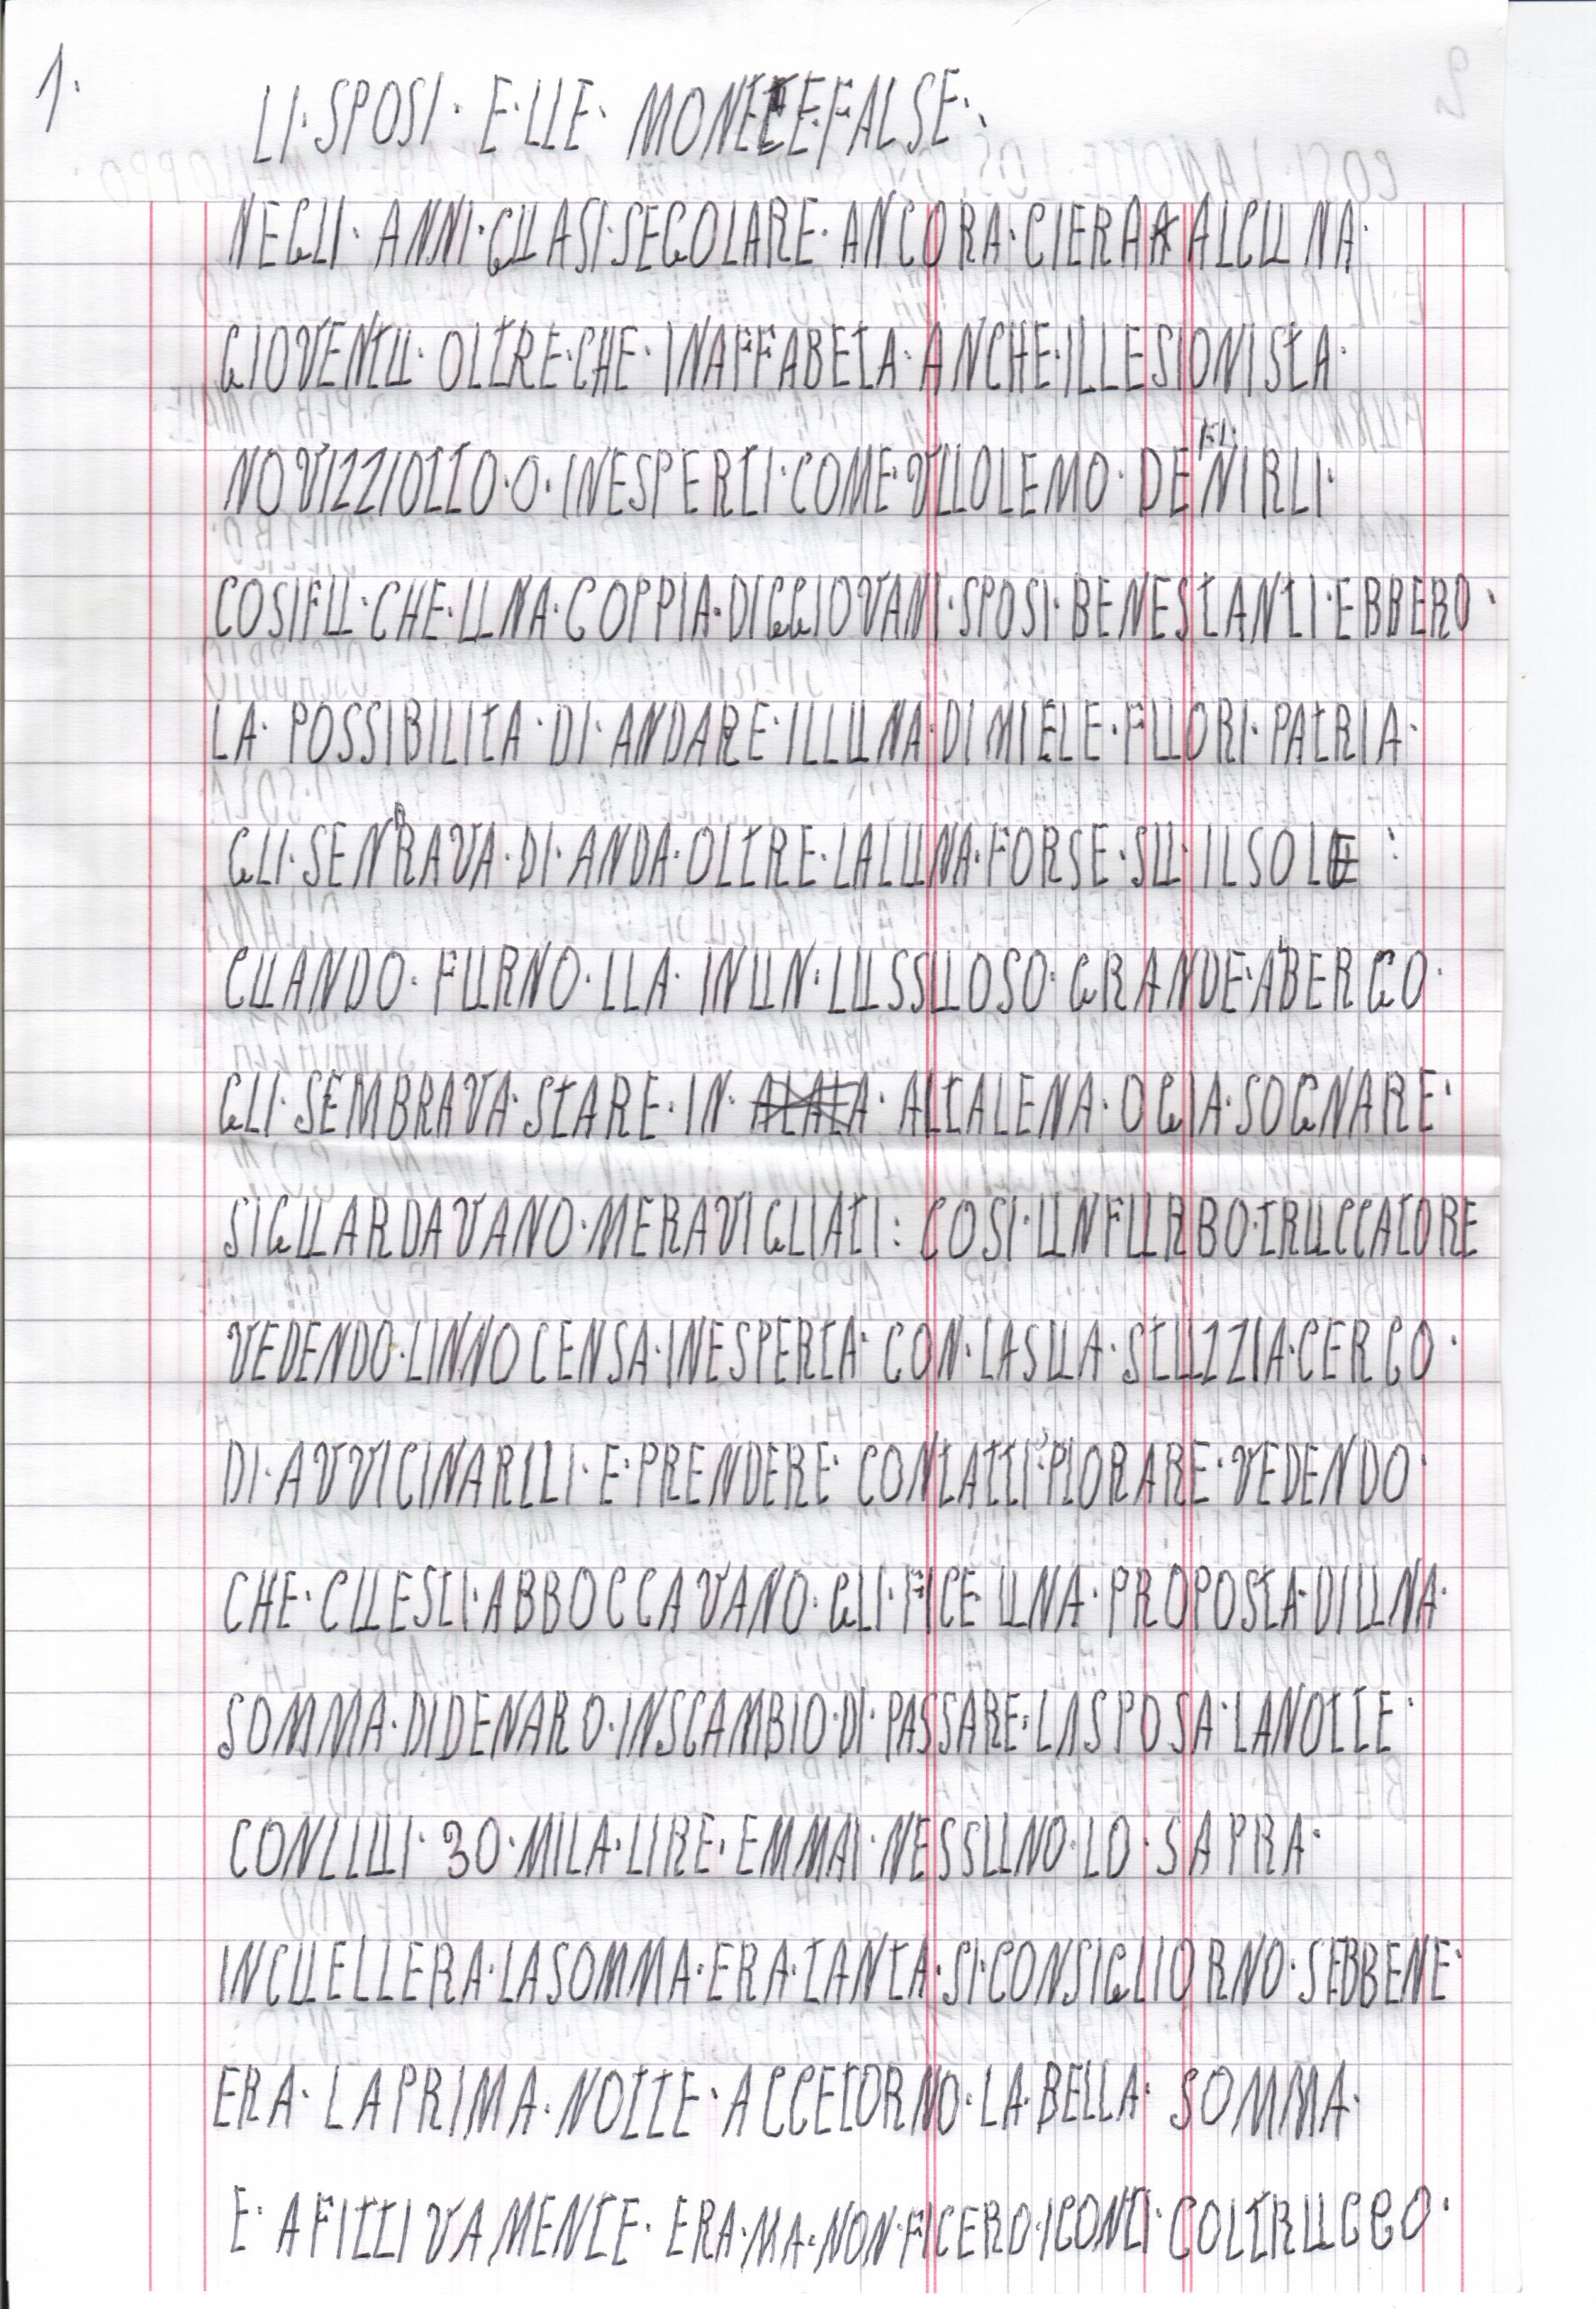 1.
LI·SPOSI· E·LLE· MONETE·FALSE·
NEGLI· ANNI·QUASI·SEGOLARE· ANCORA·CIERA ALCUNA·
GIOVENTU· OLTRE·CHE·INAFFABETA·ANCHE·ILLESIONISTA·
NOVIZZIOTTO·O·INESPERTI·COME·VUOLEMO·DEFINIRLI·
COSIFU·CHE·UNA·COPPIA·DIGGIOVANI·SPOSI·BENESTANTI·EBBERO·
LA·POSSIBILITA·DI·ANDARE·ILLUNA·DIMIELE·FUORI·PATRIA·
GLI·SENBRAVA·DI·ANDA·OLTRE·LALUNA·FORSE·SU·ILSOLE:
CUANDO·FURNO·LLA·INUN·LUSSUOSO·GRANDE·ALBERGO·
GLI·SEMBRAVA·STARE·IN· ALTALENA·OGIA·SOGNARE·
SIGUARDAVANO·MERAVIGLIATI: COSI·UNFURBO·TRUCCATORE
VEDENDO·LINNOCENSA·INESPERTA·CON·LASUA·STUZZIA·CERCO·
DI·AVVICINARLLI·E·PRENDERE·CONTATTI·PLORARE·VEDENDO·
CHE·CUESTI·ABBOCCAVANO·GLI·FICE·UNA·PROPOSTA·DIUNA·
SOMMA·DIDENARO·INSCAMBIO·DI·PASSARE·LASPOSA·LANOTTE·
CONLLUI·30·MILA·LIRE·EMMAI·NESSUNO·LO·SAPRA·
INCUELLERA·LASOMMA·ERA·TANTA·SI·CONSIGLIORNO·SEBBENE·
ERA·LAPRIMA·NOTTE·ACCETORNO·LA·BELLA·SOMMA·
E·AFITTIVAMENTE·ERA·MA·NON·FICERO·ICONTI·COLTRUCCO·